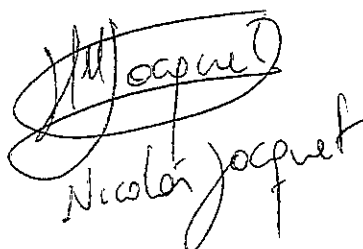 Jacquet
Nicolas Jacquet